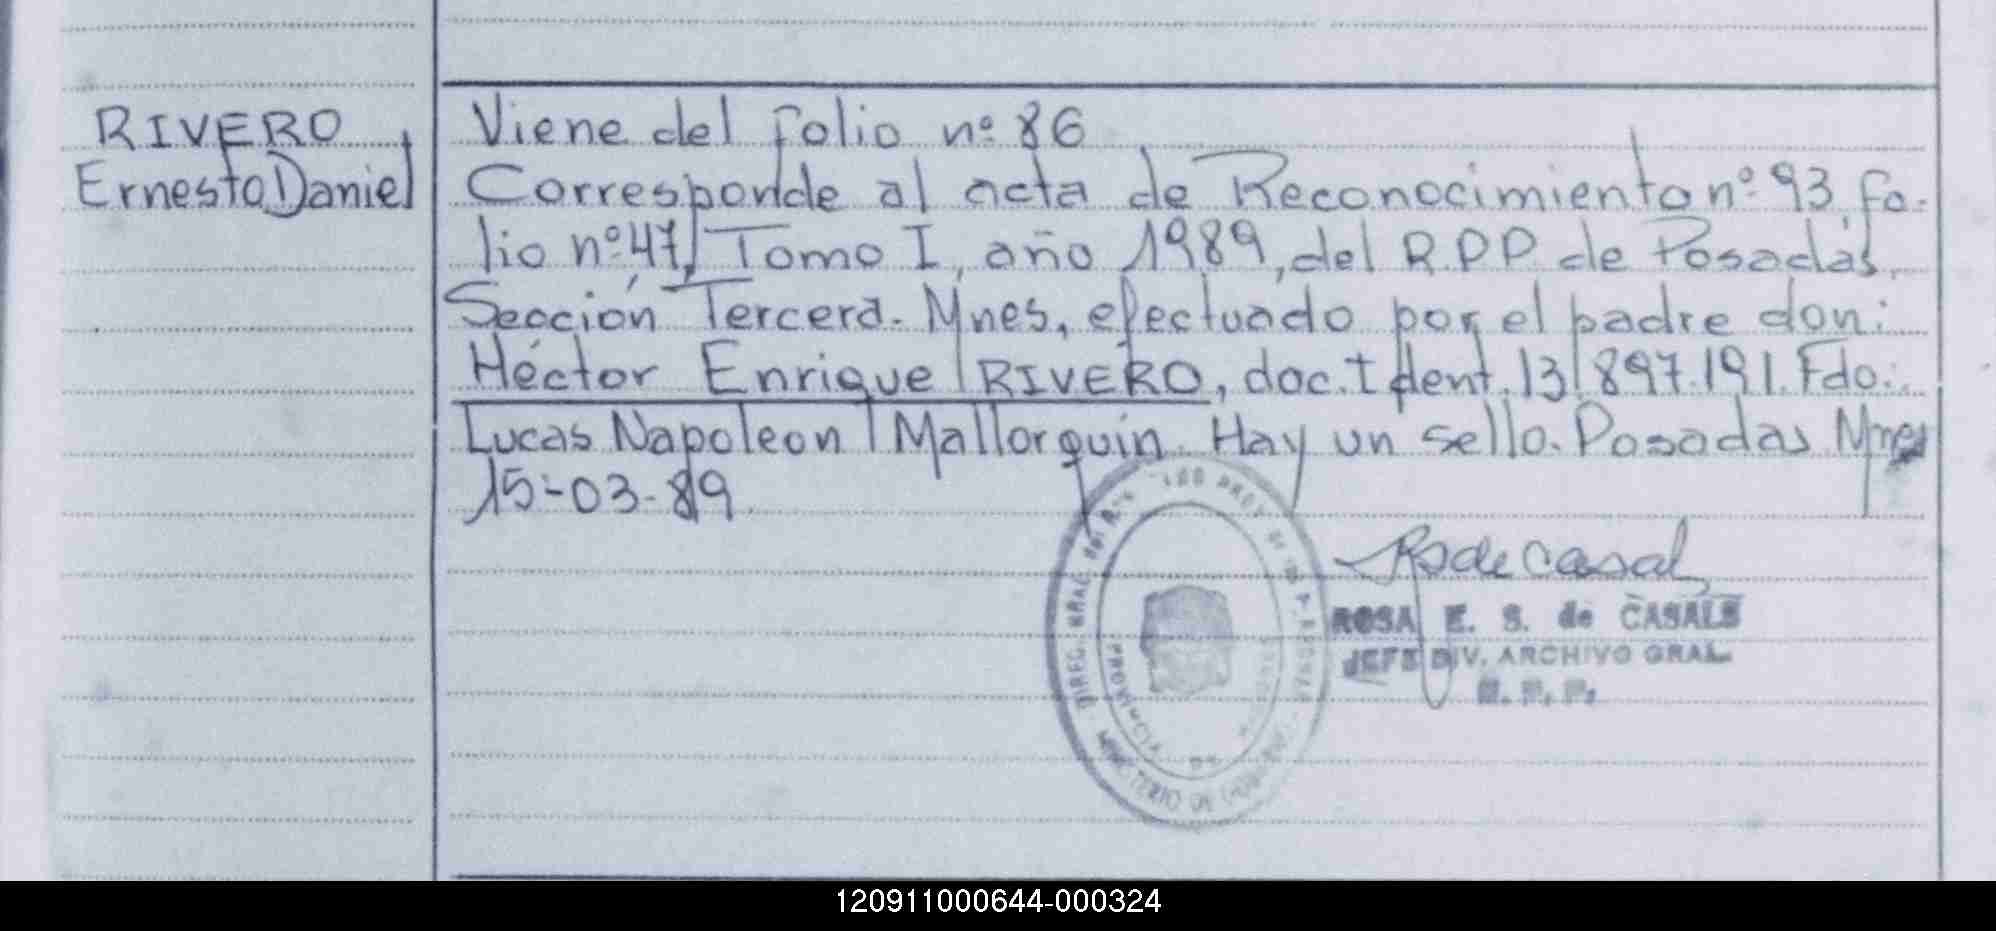 RIVERO
Ernesto Daniel
Viene del folio nº 86
Corresponde al acta de Reconocimiento nº 93, fo-
lio nº 47, Tomo I, año 1989, del R.P.P. de Posadas,
Sección Tercera. Mnes, efectuado por el padre don:
Héctor Enrique RIVERO, doc. Ident. 13.897.191. Fdo:
Lucas Napoleon Mallorquin. Hay un sello. Posadas Mnes
15-03-89.
ROSA E. S. de CASALS
JEFE DIV. ARCHIVO GRAL.
R. P. P.
DIREC. GRAL. del
PROVINCIA DE
MINISTERIO DE
120911000644-000324